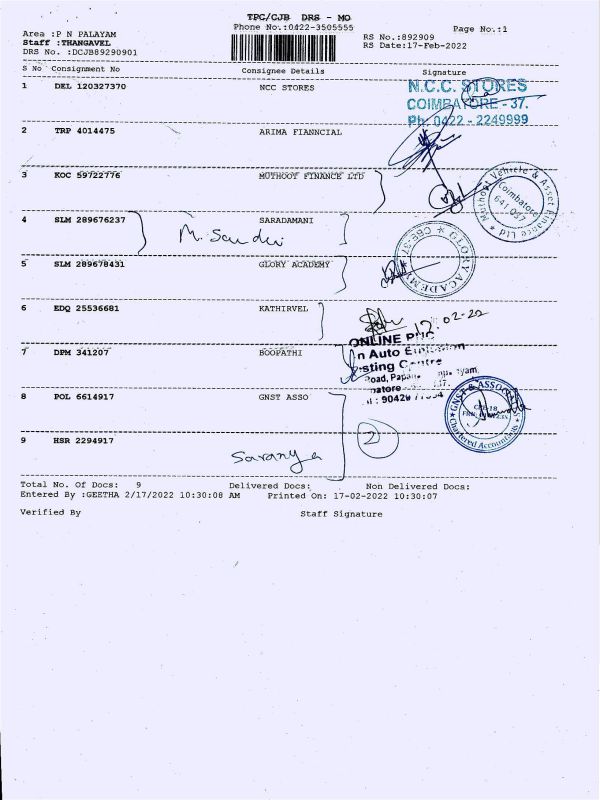 TPC/CJB DRS - MO
Area :P N PALAYAM
Phone No.:0422-3505555
Page No.:1
Staff :THANGAVEL
RS No.:892909
DRS No. :DCJB89290901
RS Date:17-Feb-2022
S No Consignment No Consignee Details Signature
1 DEL 120327370 NCC STORES
N.C.C. STORES
COIMBATORE - 37.
Ph: 0422 - 2249999
2 TRP 4014475 ARIMA FIANNCIAL
3 KOC 59722776 MUTHOOT FINANCE LTD
Muthoot Vehicle & Asset Finance Ltd
Coimbatore
641 037
4 SLM 289676237 SARADAMANI
GLORY ACADEMY
CBE-37
5 SLM 289678431 GLORY ACADEMY
6 EDQ 25536681 KATHIRVEL
17-02-22
ONLINE
7 DPM 341207 BOOPATHI
n Auto
sting
Road,
8 POL 6614917 GNST ASSO
GNST & ASSOCIATES
Chartered Accountants
2
9 HSR 2294917
Saranya
Total No. Of Docs: 9 Delivered Docs: Non Delivered Docs:
Entered By :GEETHA 2/17/2022 10:30:08 AM Printed On: 17-02-2022 10:30:07
Verified By Staff Signature